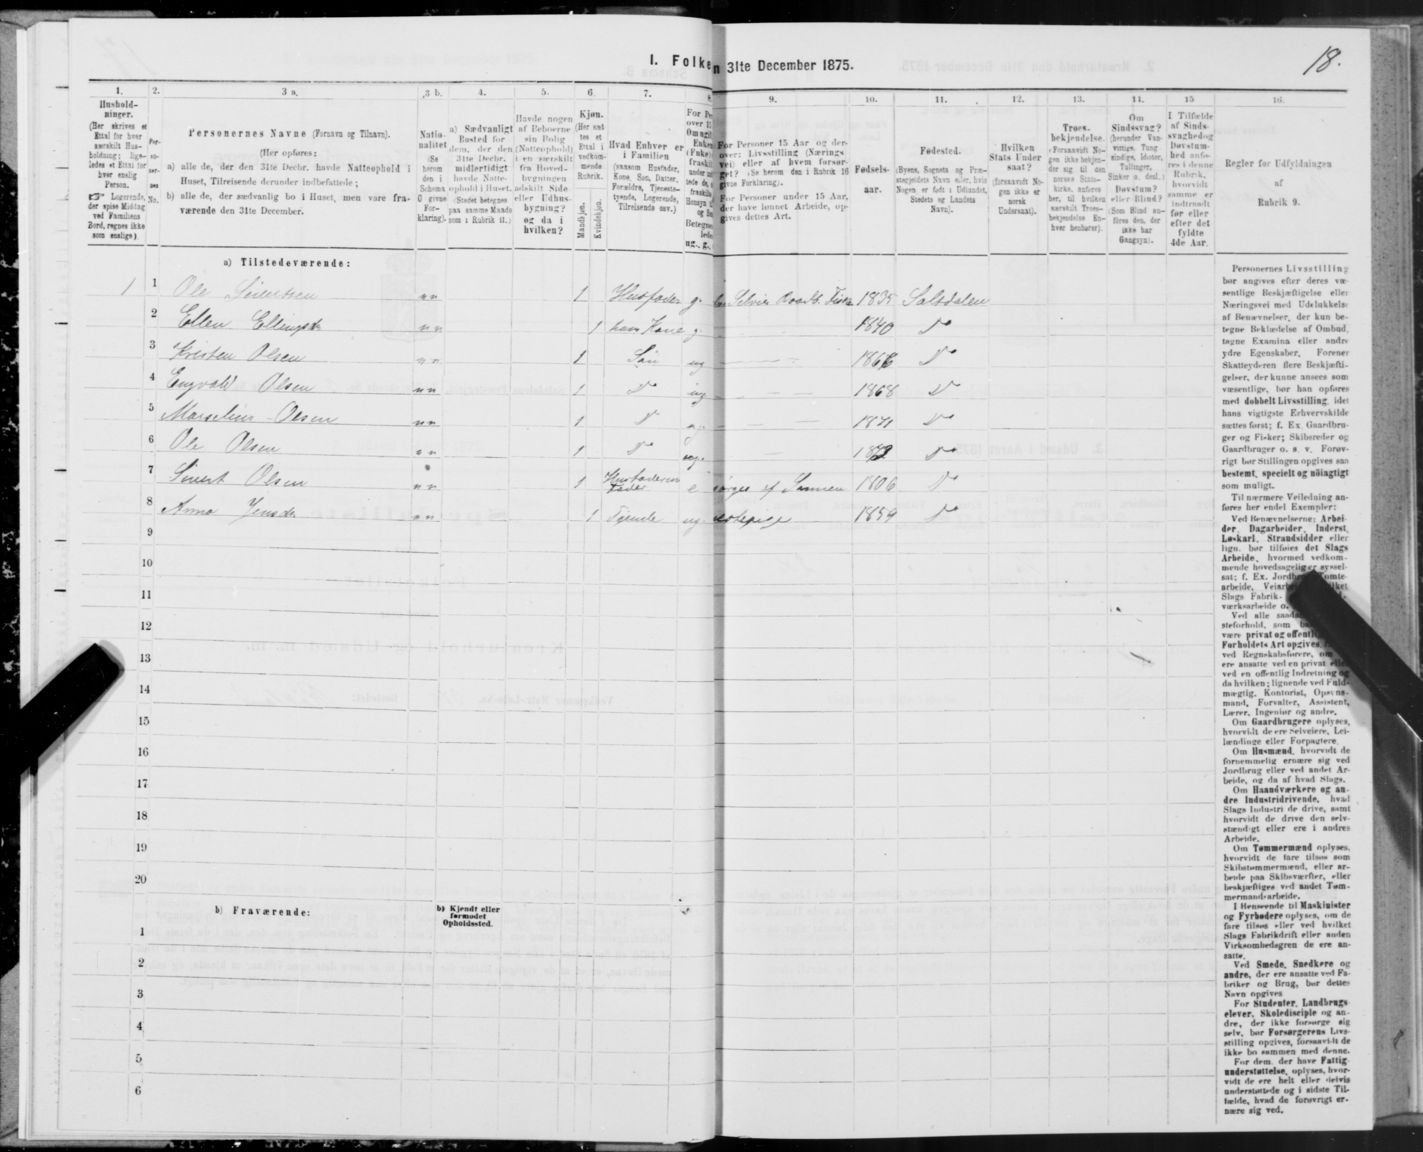 18.
I. Folke
n 31te December 1875.
1. 2. 3 a. 3 b. 4. 5. 6. 7. 8. 9. 10. 11. 12. 13. 14. 15 16.
Hushold-
ninger.
(Her skrives et
Ettal for hver
særskilt Hus-
holdning; lige-
ledes et Ettal for
hver enslig
Person.
☞ Logerende,
der spise Middag
ved Familiens
Bord, regnes ikke
som enslige)
Per-
so-
ner-
nes
No.
Personernes Navne (Fornavn og Tilnavn).
(Her opføres:
a) alle de, der den 31te Decbr. havde Natteophold i
Huset, Tilreisende derunder indbefattede;
b) alle de, der sædvanlig bo i Huset, men vare fra-
værende den 31te December.
Natio-
nalitet
(Se
herom
den i
Schema
O givne
For-
klaring).
a) Sædvanligt
Bosted for
dem, der den
31te Decbr.
midlertidigt
havde Natte-
ophold i Huset.
(Stedet betegnes
paa samme Maade
som i Rubrik 11.)
Havde nogen
af Beboerne
sin Bolig
(Natteophold)
i en særskilt
fra Hoved-
bygningen
adskilt Side
eller Udhus-
bygning?
og da i
hvilken?
Kjøn.
(Her sæt-
tes et
Ettal i
vedkom-
mende
Rubrik.
Mandkjøn.
Kvindekjøn.
Hvad Enhver er
i Familien
(saasom Husfader,
Kone, Søn, Datter,
Forældre, Tjeneste-
tyende, Logerende,
Tilreisende osv.)
For Personer 15 Aar og der-
over: Livsstilling (Nærings-
vei) eller af hvem forsør-
get? (Se herom den i Rubrik 16
givne Forklaring).
For Personer under 15 Aar,
der have lønnet Arbeide, op-
gives dettes Art.
Fødsels-
aar.
Fødested.
(Byens, Sognets og Præ-
stegjeldets Navn eller, hvis
Nogen er født i Udlandet,
Stedets og Landets
Navn).
Hvilken
Stats Under
saat?
(forsaavidt No-
gen ikke er
norsk
Undersaat).
Troes-
bekjendelse.
(Forsaavidt No-
gen ikke bekjen-
der sig til den
norske Stats-
kirke, anføres
her, til hvilken
særskilt Troes-
bekjendelse En-
hver henhører).
Om
Sindssvag?
(herunder Van-
vittige, Tung
sindige, Idioter,
Tullinger,
Sinker o. desl.)
Døvstum?
eller Blind?
(Som Blind an-
føres den, der
ikke har
Gangsyn).
I Tilfælde
af Sinds-
svaghed og
Døvstum-
hed anfø-
res i denne
Rubrik,
hvorvidt
samme er
indtraadt
før eller
efter det
fyldte
4de Aar.
Regler for Udfyldningen
af
Rubrik 9.
a) Tilstedeværende:
1 1 Ole Sivertsen nn 1 Husfader g Selveier Gaardb. Fisker 1835 Saltdalen
2 Ellen Ellingsdr nn 1 hans Kone g 1840 Do
3 Kristen Olsen nn 1 Søn ug 1866 Do
4 Engvald Olsen nn 1 Do ug 1868 Do
5 Marselius Olsen nn 1 D 1871 Do
6 Ole Olsen nn 1 Do ug 1873 Do
7 Sivert Olsen nn 1 Husfaderens
Fader e ørges af Sønnen 1806 Do
8 Anna Jensdr nn 1 Tjente ug 1859 Do
9
10
11
12
13
14
15
16
17
18
19
20
b) Fraværende:
b) Kjendt eller
formodet
Opholdssted.
1
2
3
4
5
6
Personernes Livsstilling
bør angives efter deres væ-
sentlige Beskjæftigelse eller
Næringsvei med Udelukkelse
af Benævnelser, der kun be-
tegne Beklædelse af Ombud,
tagne Examina eller andre
ydre Egenskaber. Forener
Skatteyderen flere Beskjæfti-
gelser, der kunne ansees som
væsentlige, bør han opføres
med dobbelt Livsstilling, idet
hans vigtigste Erhvervskilde
sættes først; f. Ex. Gaardbru-
ger og Fisker; Skibsreder og
Gaardbruger o. s. v. Forøv-
rigt bør Stillingen opgives saa
bestemt, specielt og nöiagtigt
som muligt.
Til nærmere Veiledning an-
føres her endel Exempler:
Ved Benævnelserne: Arbei-
der, Dagarbeider, Inderst,
Løskarl, Strandsidder eller
lign. bør tilføies det Slags
Arbeide, hvormed vedkom-
mende hovedsagelig er syssel-
sat; f. Ex. Jord
arbeide, Veiar
Slags Fabrik-
værksarbeide o.
Ved alle saada
steforhold, som
være privat og offentl
Forholdets Art opgives,
ved Regnskabsførere, om
ere ansatte ved en privat el
ved en offentlig Indretning og
da hvilken; lignende ved Fuld-
mægtig, Kontorist, Opsyns-
mand, Forvalter, Assistent,
Lærer, Ingeniør og andre.
Om Gaardbrugere oplyses,
hvorvidt de ere Selveiere, Lei-
lændinge eller Forpagtere.
Om Husmænd, hvorvidt de
fornemmelig ernære sig ved
Jordbrug eller ved andet Ar-
beide, og da af hvad Slags.
Om Haandværkere og an-
dre Industridrivende, hvad
Slags Industri de drive, samt
hvorvidt de drive den selv-
stændigt eller ere i andres
Arbeide.
Om Tømmermænd oplyses,
hvorvidt de fare tilsøs som
Skibstømmermænd, eller ar-
beide paa Skibsværfter, eller
beskjæftiges ved andet Tøm-
mermandsarbeide.
I Henseende til Maskinister
og Fyrbødere oplyses, om de
fare tilsøs eller ved hvilket
Slags Fabrikdrift eller anden
Virksomhedsgren de ere an-
satte.
Ved Smede, Snedkere og
andre, der ere ansatte ved Fa-
briker og Brug, bør dettes
Navn opgives
For Studenter, Landbrugs-
elever, Skoledisciple og an-
dre, der ikke forsørge sig
selv, bør Forsørgerens Livs-
stilling opgives, forsaavidt de
ikke bo sammen med denne.
For dem, der have Fattig-
understøttelse, oplyses, hvor-
vidt de ere helt eller delvis
understøttede og i sidste Til-
fælde, hvad de forøvrigt er-
nære sig ved.